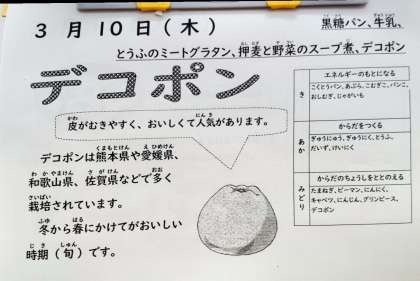 3月10日(木)
黒糖パン、牛乳、
とうふのミートグラタン、押麦と野菜のスープ煮、デコポン
デコポン
皮がむきやすく、おいしくて人気があります。
デコポンは熊本県や愛媛県、
和歌山県、佐賀県などで多く
栽培されています。
冬から春にかけてがおいしい
時期(旬)です。
エネルギーのもとになる
き
こくとうパン、あぶら、こむぎこ、パンこ、
おしむぎ、じゃがいも
からだをつくる
あか
ぎゅうにゅう、ぎゅうにく、とうふ、
だいず、けいにく
からだのちょうしをととのえる
みどり
たまねぎ、ピーマン、にんにく、
キャベツ、にんじん、グリンピース、
デコポン